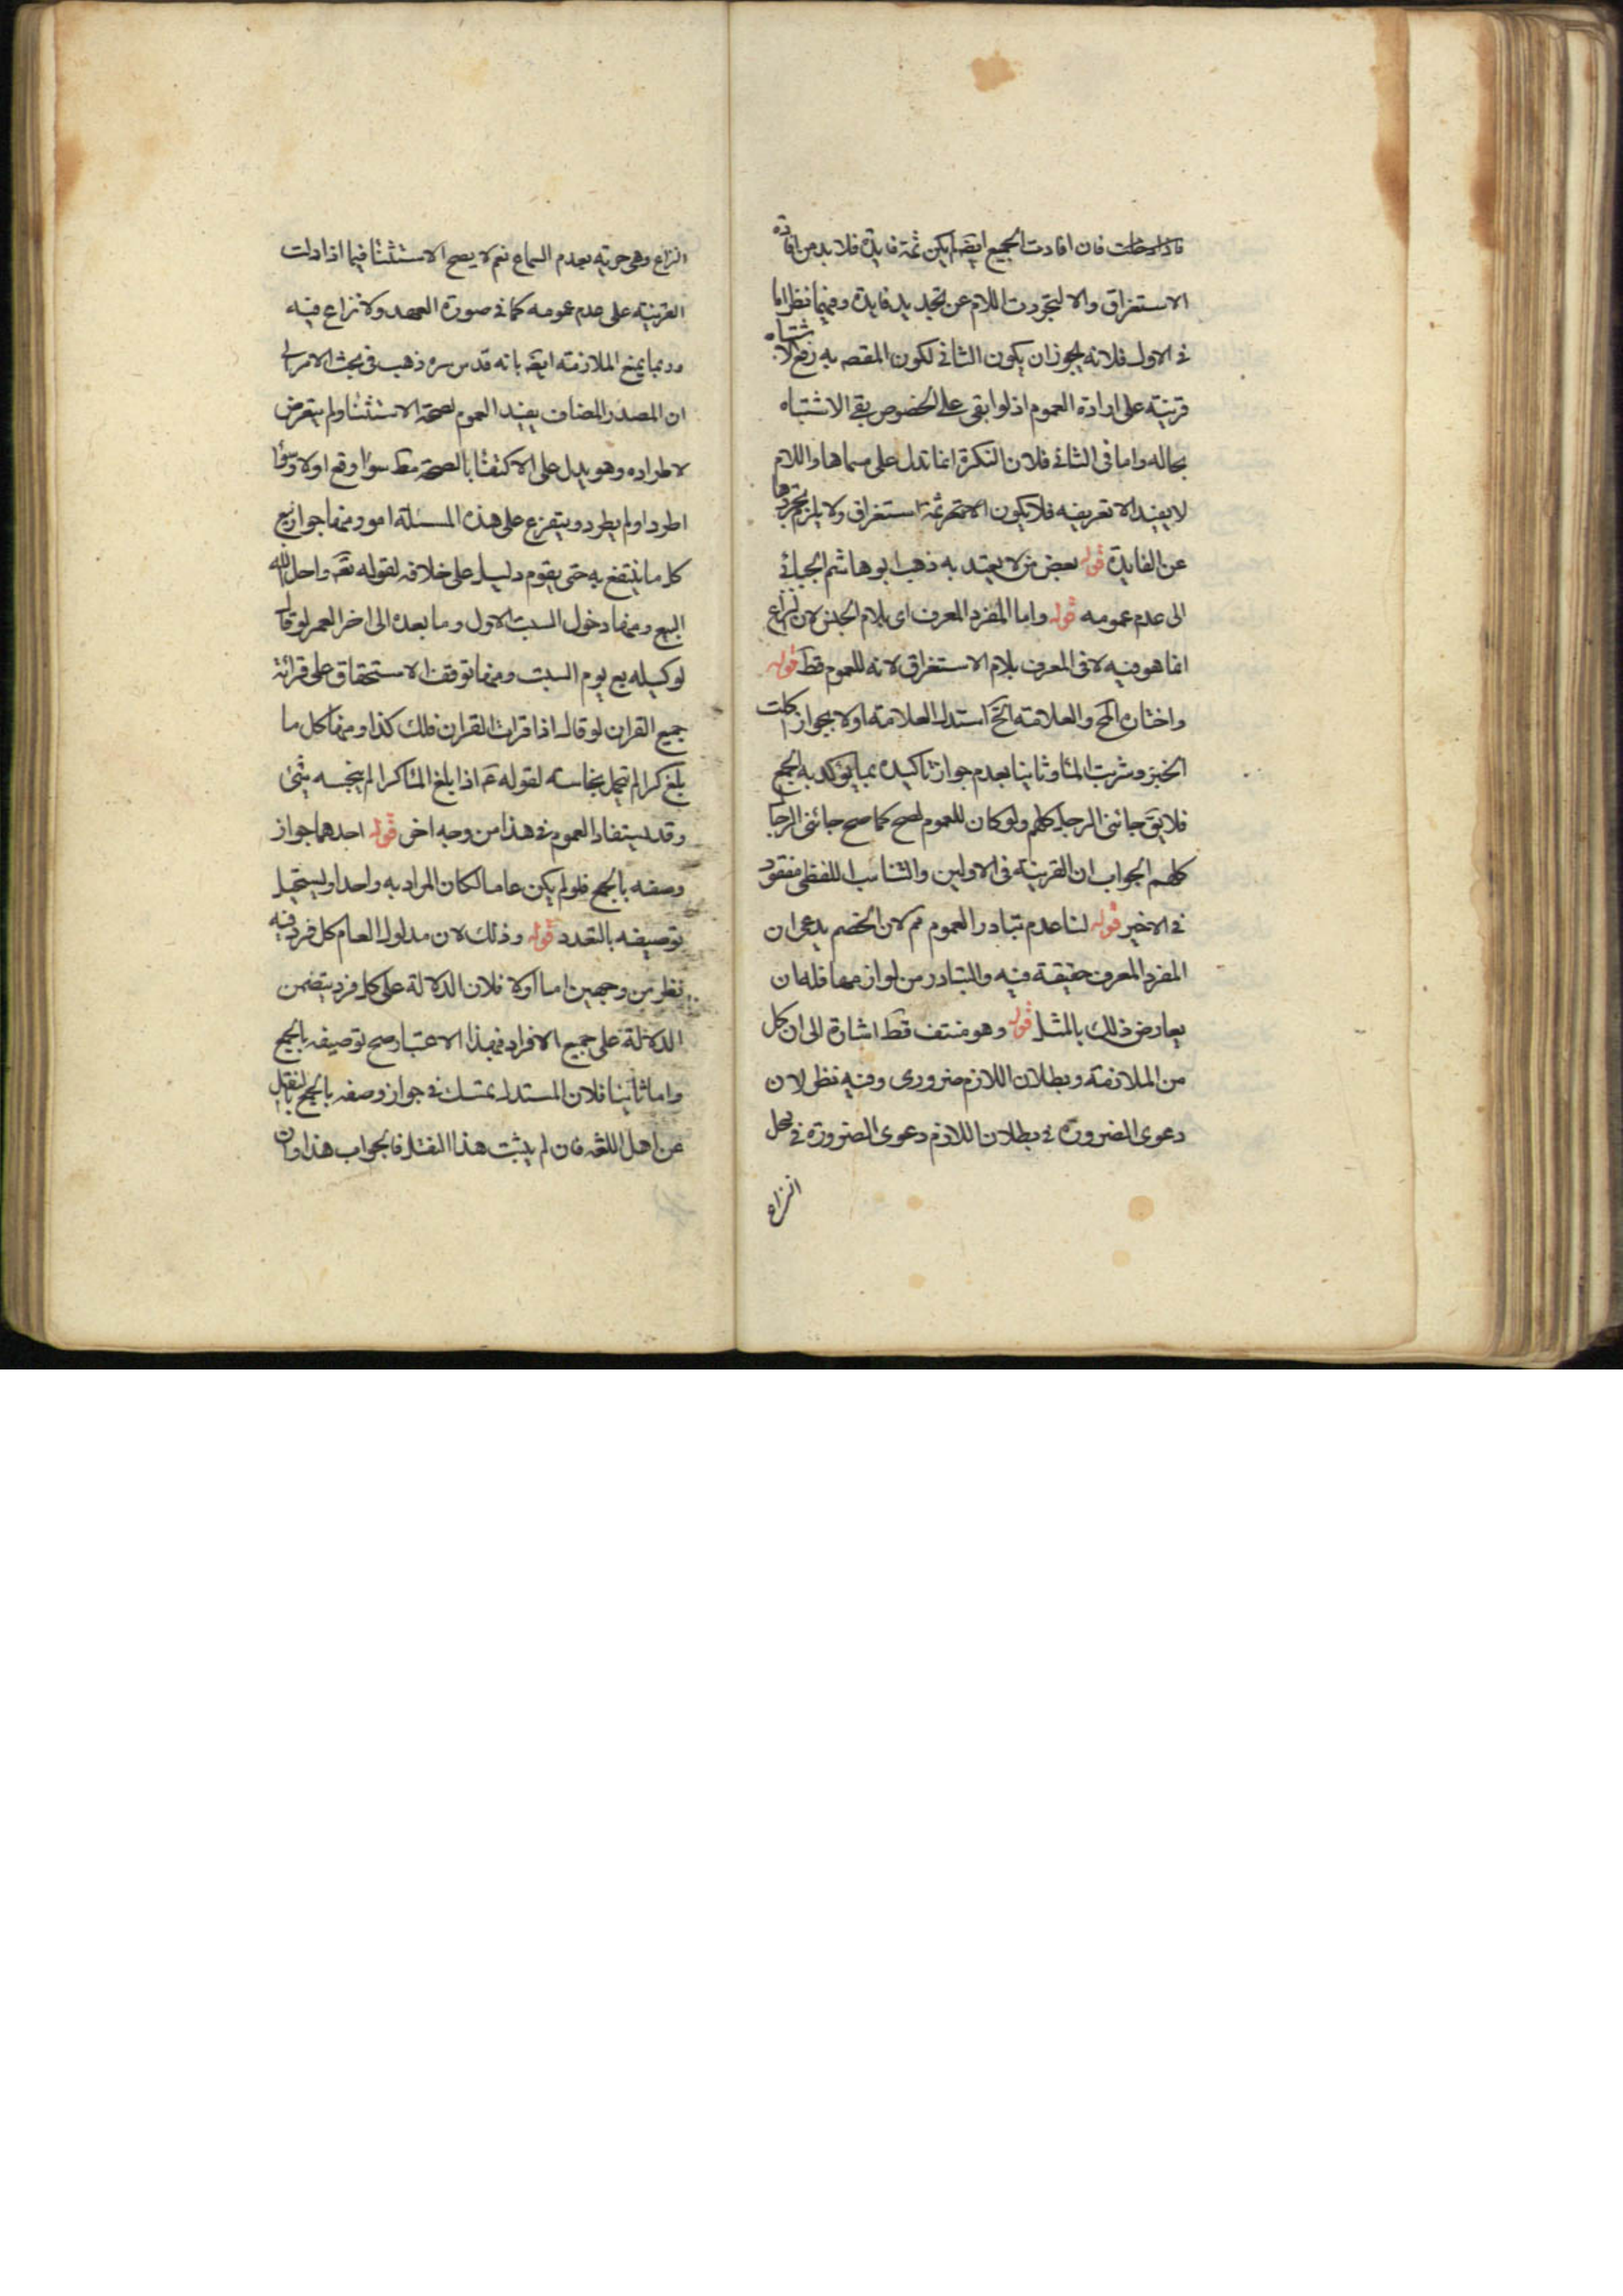 فاذا دخلت فان افادت الجمع ايضا لم يكن ثمة فايدة فلا بد من افادة
الاستغراق والا لتجردت اللام عن تجديد فايدة وفيهما نظر اما
في الاول فلانه يجوز ان يكون الثاني لكون المقصه به رفع الاشتباه
قرينة على ارادة العموم اذ لو ابقى على الخصوص بقي الاشتباه
بحاله واما في الثاني فلان النكرة انما تدل على مسماها واللام
لا يفيد الا تعريفه فلا يكون ثمة استغراق ولا يلزم تجردها
عن الفايدة قوله بعض من لا يعتد به ذهب ابو هاشم الجبائي
الى عدم عمومه قوله واما المفرد المعرف اي بلام الجنس لان النزاع
انما هو فيه لا في المعرف بلام الاستغراق لانه للعموم قط قوله
واختاره المح والعلامة الخ استدل العلامة اولا بجواز اكلت
الخبز وشربت الماء وثانيا بعدم جواز تاكيده بما يؤكد به الجمع
فلا يق جائني الرجل كلهم ولو كان للعموم لصح كما صح جائني الرجال
كلهم الجواب ان القرينة في الاولين والتناسب اللفظي مفقود
في الاخير قوله لنا عدم تبادر العموم تم لان الخصم يدعي ان
المفرد المعرف حقيقة فيه والتبادر من لوازمها فله ان
يعارض ذلك بالمثل قوله وهو منتف قط اشارة الى ان كل
من الملازمة وبطلان اللازم ضروري وفيه نظر لان
دعوى الضرورة في بطلان اللازم دعوى الضرورة في محل
النزاع
النزاع وهي حرية بعدم السماع نعم لا يصح الاستثنا فيما اذا دلت
القرينة على عدم عمومه كما في صورة العهد ولا نزاع فيه
وربما يمنع الملازمة ايضا بانه قدس سره ذهب في بحث الامر الى
ان المصدر المضاف يفيد العموم لصحة الاستثنا ولم يتعرض
لاطراده وهو يدل على الاكتفا بالصحة مط سواء وقع اولا وسواء
اطرد او لم يطرد ويتفرع على هذه المسئلة امور منها جواز بيع
كل ما ينتفع به حتى يقوم دليل على خلافه لقوله تعه واحل الله
البيع ومنها دخول السبت الاول وما بعده الى اخر العمر لو قال
لوكيله بع يوم السبت ومنها توقف الاستحقاق على قرائة
جميع القران لو قال اذا قرات القران فلك كذا ومنها كل ما
بلغ كرا لم يحمل نجاسة لقوله عم اذا بلغ الماء كرا لم ينجسه شئ
وقد يستفاد العموم في هذا من وجه اخر قوله احدهما جواز
وصفه بالجمع فلو لم يكن عاما لكان المراد به واحدا ويستحيل
توصيفه بالتعدد قوله وذلك لان مدلول العام كل فرد فيه
نظر من وجهين اما اولا فلان الدلالة على كل فرد يتضمن
الدلالة على جميع الافراد فبهذا الاعتبار صح توصيفه بالجمع
واما ثانيا فلان المستدل يمتسك في جواز وصفه بالجمع بالنقل
عن اهل اللغة فان لم يثبت هذا النقل فالجواب هذا وان